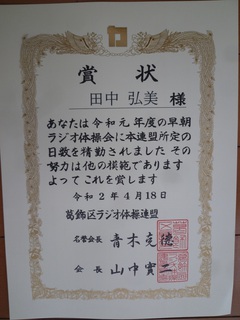 賞状
田中 弘美 様
あなたは令和元年度の早朝
ラジオ体操会に本連盟所定の
日数を精勤されました その
努力は他の模範であります
よってこれを賞します
令和2年4月18日
葛飾区ラジオ体操連盟
名誉会長 青木克德
会長 山中實二